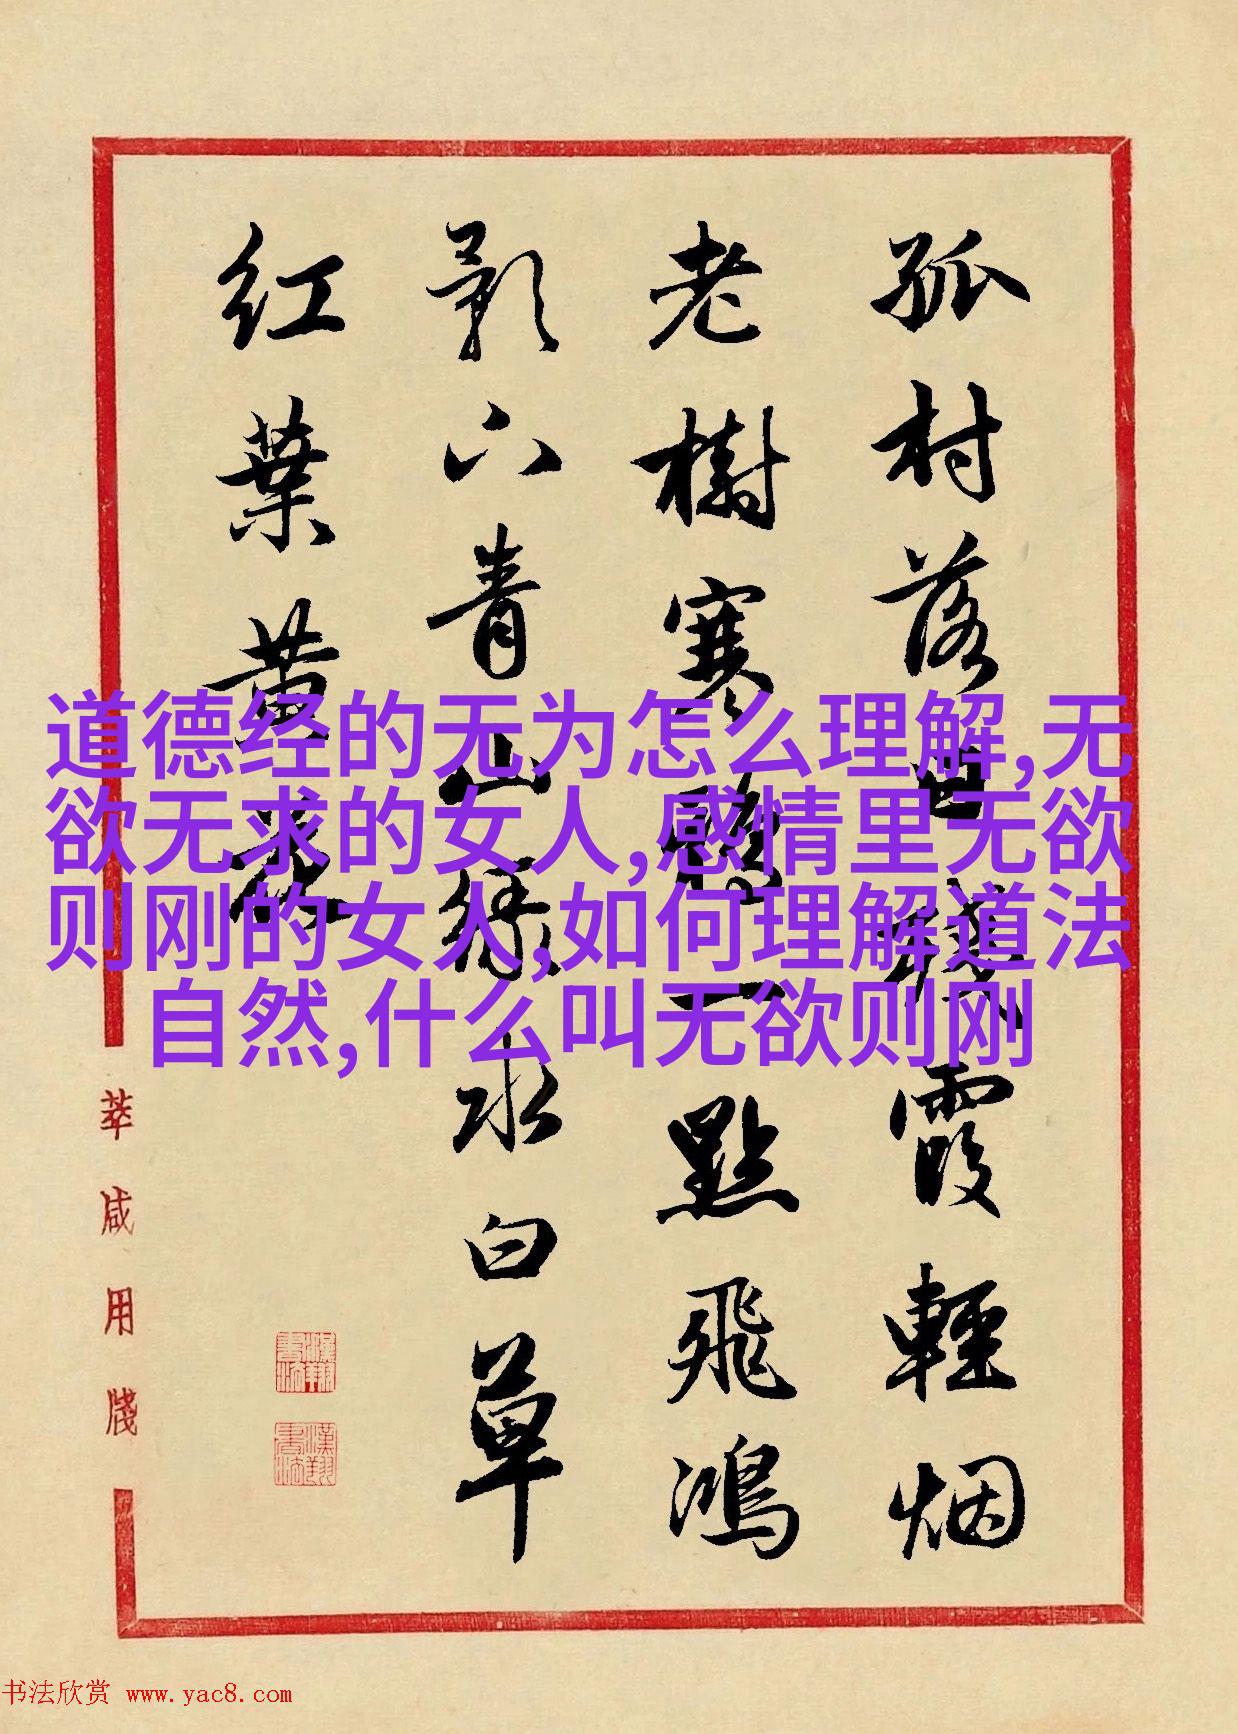 孤村落日残霞輕烟
老樹寒鴉一點飛鴻
影下青山緑水白草
红葉黄花
道德经的无为怎么理解,无
欲无求的女人,感情里无欲
则刚的女人,如何理解道法
自然,什么叫无欲则刚
萃咸用牋
書法欣赏 www.yac8.com